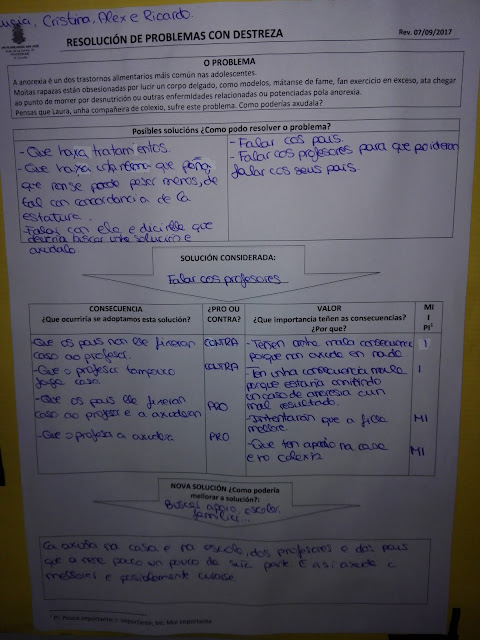 Lucía, Cristina, Alex e Ricardo.
RESOLUCIÓN DE PROBLEMAS CON DESTREZA
Rev. 07/09/2017
O PROBLEMA
A anorexia é un dos trastornos alimentarios máis común nas adolescentes.
Moitas rapazas están obsesionadas por lucir un corpo delgado, como modelos, mátanse de fame, fan exercicio en exceso, ata chegar
ao punto de morrer por desnutrición ou outras enfermidades relacionadas ou potenciadas pola anorexia.
Pensas que Laura, unha compañeira de colexio, sufre este problema. Como poderías axudala?
Posibles solucións ¿Como podo resolver o problema?
- Que haxa tratamentos.
- Que haxa que poña
que non se pode pesar menos, de
tal con concordancia de la
estatura.
- Falar con ela e dicirlle que
debería buscar unha solución e
axudala.
- Falar cos pais.
- Falar cos profesores para que poideran
falar cos seus pais.
SOLUCIÓN CONSIDERADA:
Falar cos profesores
CONSECUENCIA
¿Que ocorriría se adoptamos esta solución?
¿PRO OU
CONTRA?
VALOR
¿Que importancia teñen as consecuencias?
¿Por que?
MI
I
PI¹
- Que os pais non lle fixeran
caso ao profesor.
CONTRA
- Teñen unha mala consecuencia
porque non axuda en nada.
I
- Que o profesor tampouco
faga caso.
CONTRA
- Ten unha consecuencia mala
porque estaría omitindo
un caso de anorexia cun
mal resultado.
I
- Que os pais lle fixeran
caso ao profesor e a axudaran
PRO
- Intentarán que a filla
mellore.
MI
- Que o profesor a axudara
PRO
- Que ten apoio na casa
e no colexio
MI
NOVA SOLUCIÓN ¿Como podería
mellorar a solución?:
Buscar apoio escolar,
familiar...
Ca axuda na casa e na escola, dos profesores e dos pais
que a nena pouco un pouco da súa parte e así axude a
mellorar e posiblemente curarse.
¹ PI: Pouco importante; I: Importante; MI: Moi importante